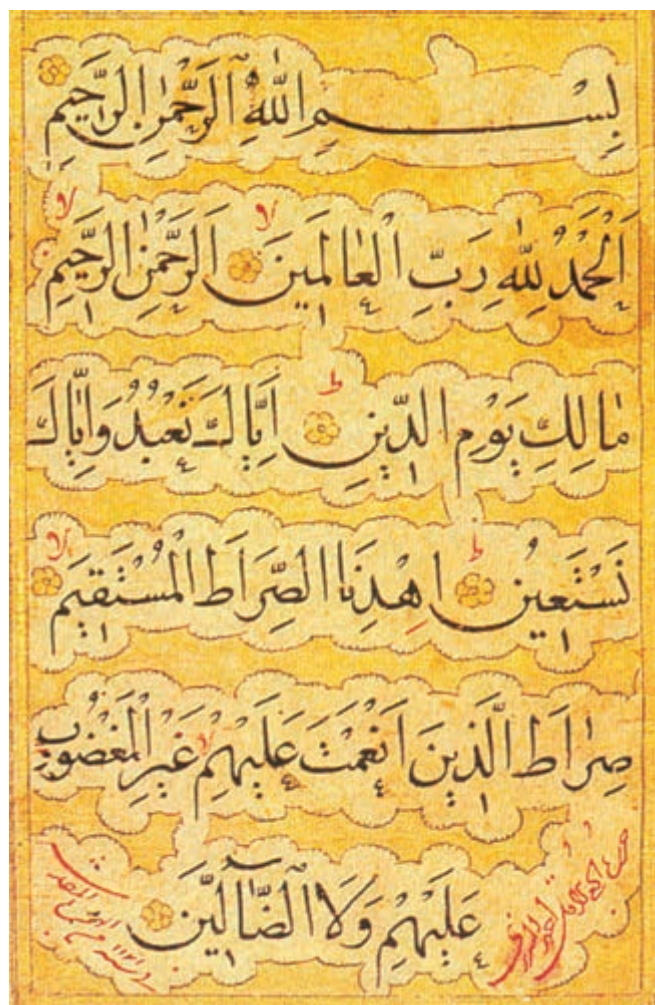 بِسْمِ اللّٰهِ الرَّحْمٰنِ الرَّحِيمِ
اَلْحَمْدُ لِلّٰهِ رَبِّ الْعٰالَمِينَ لا اَلرَّحْمٰنِ الرَّحِيمِ لا
مٰالِكِ يَوْمِ الدّ۪ينِ ط اِيّٰاكَ نَعْبُدُ وَاِيّٰاكَ
نَسْتَع۪ينُ ط اِهْدِنَا الصِّرَاطَ الْمُسْتَق۪يمَ لا
صِرٰاطَ الَّذ۪ينَ اَنْعَمْتَ عَلَيْهِمْ لا غَيْرِ الْمَغْضُوبِ
عَلَيْهِمْ وَلَا الضَّٓالّ۪ينَ